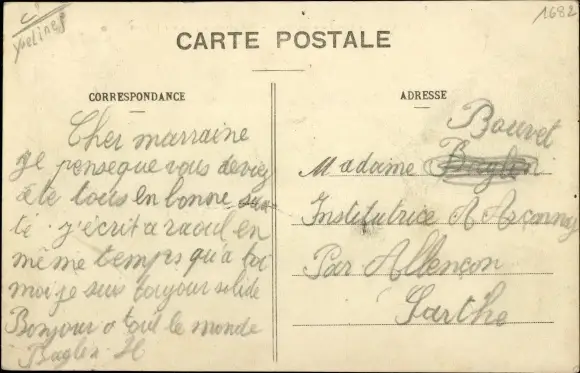 Yvelines
1682
CARTE POSTALE
CORRESPONDANCE
Cher marraine
je pense que vous devez
éte tous en bonne san
té. j'écrit a raoul en
même temps qu'a toi
moi je suis toujour solide
Bonjour a tout le monde
Baglin H
ADRESSE
Bouvet
Madame Baglin
Institutrice A Arçonnay
Par Allençon
Sarthe